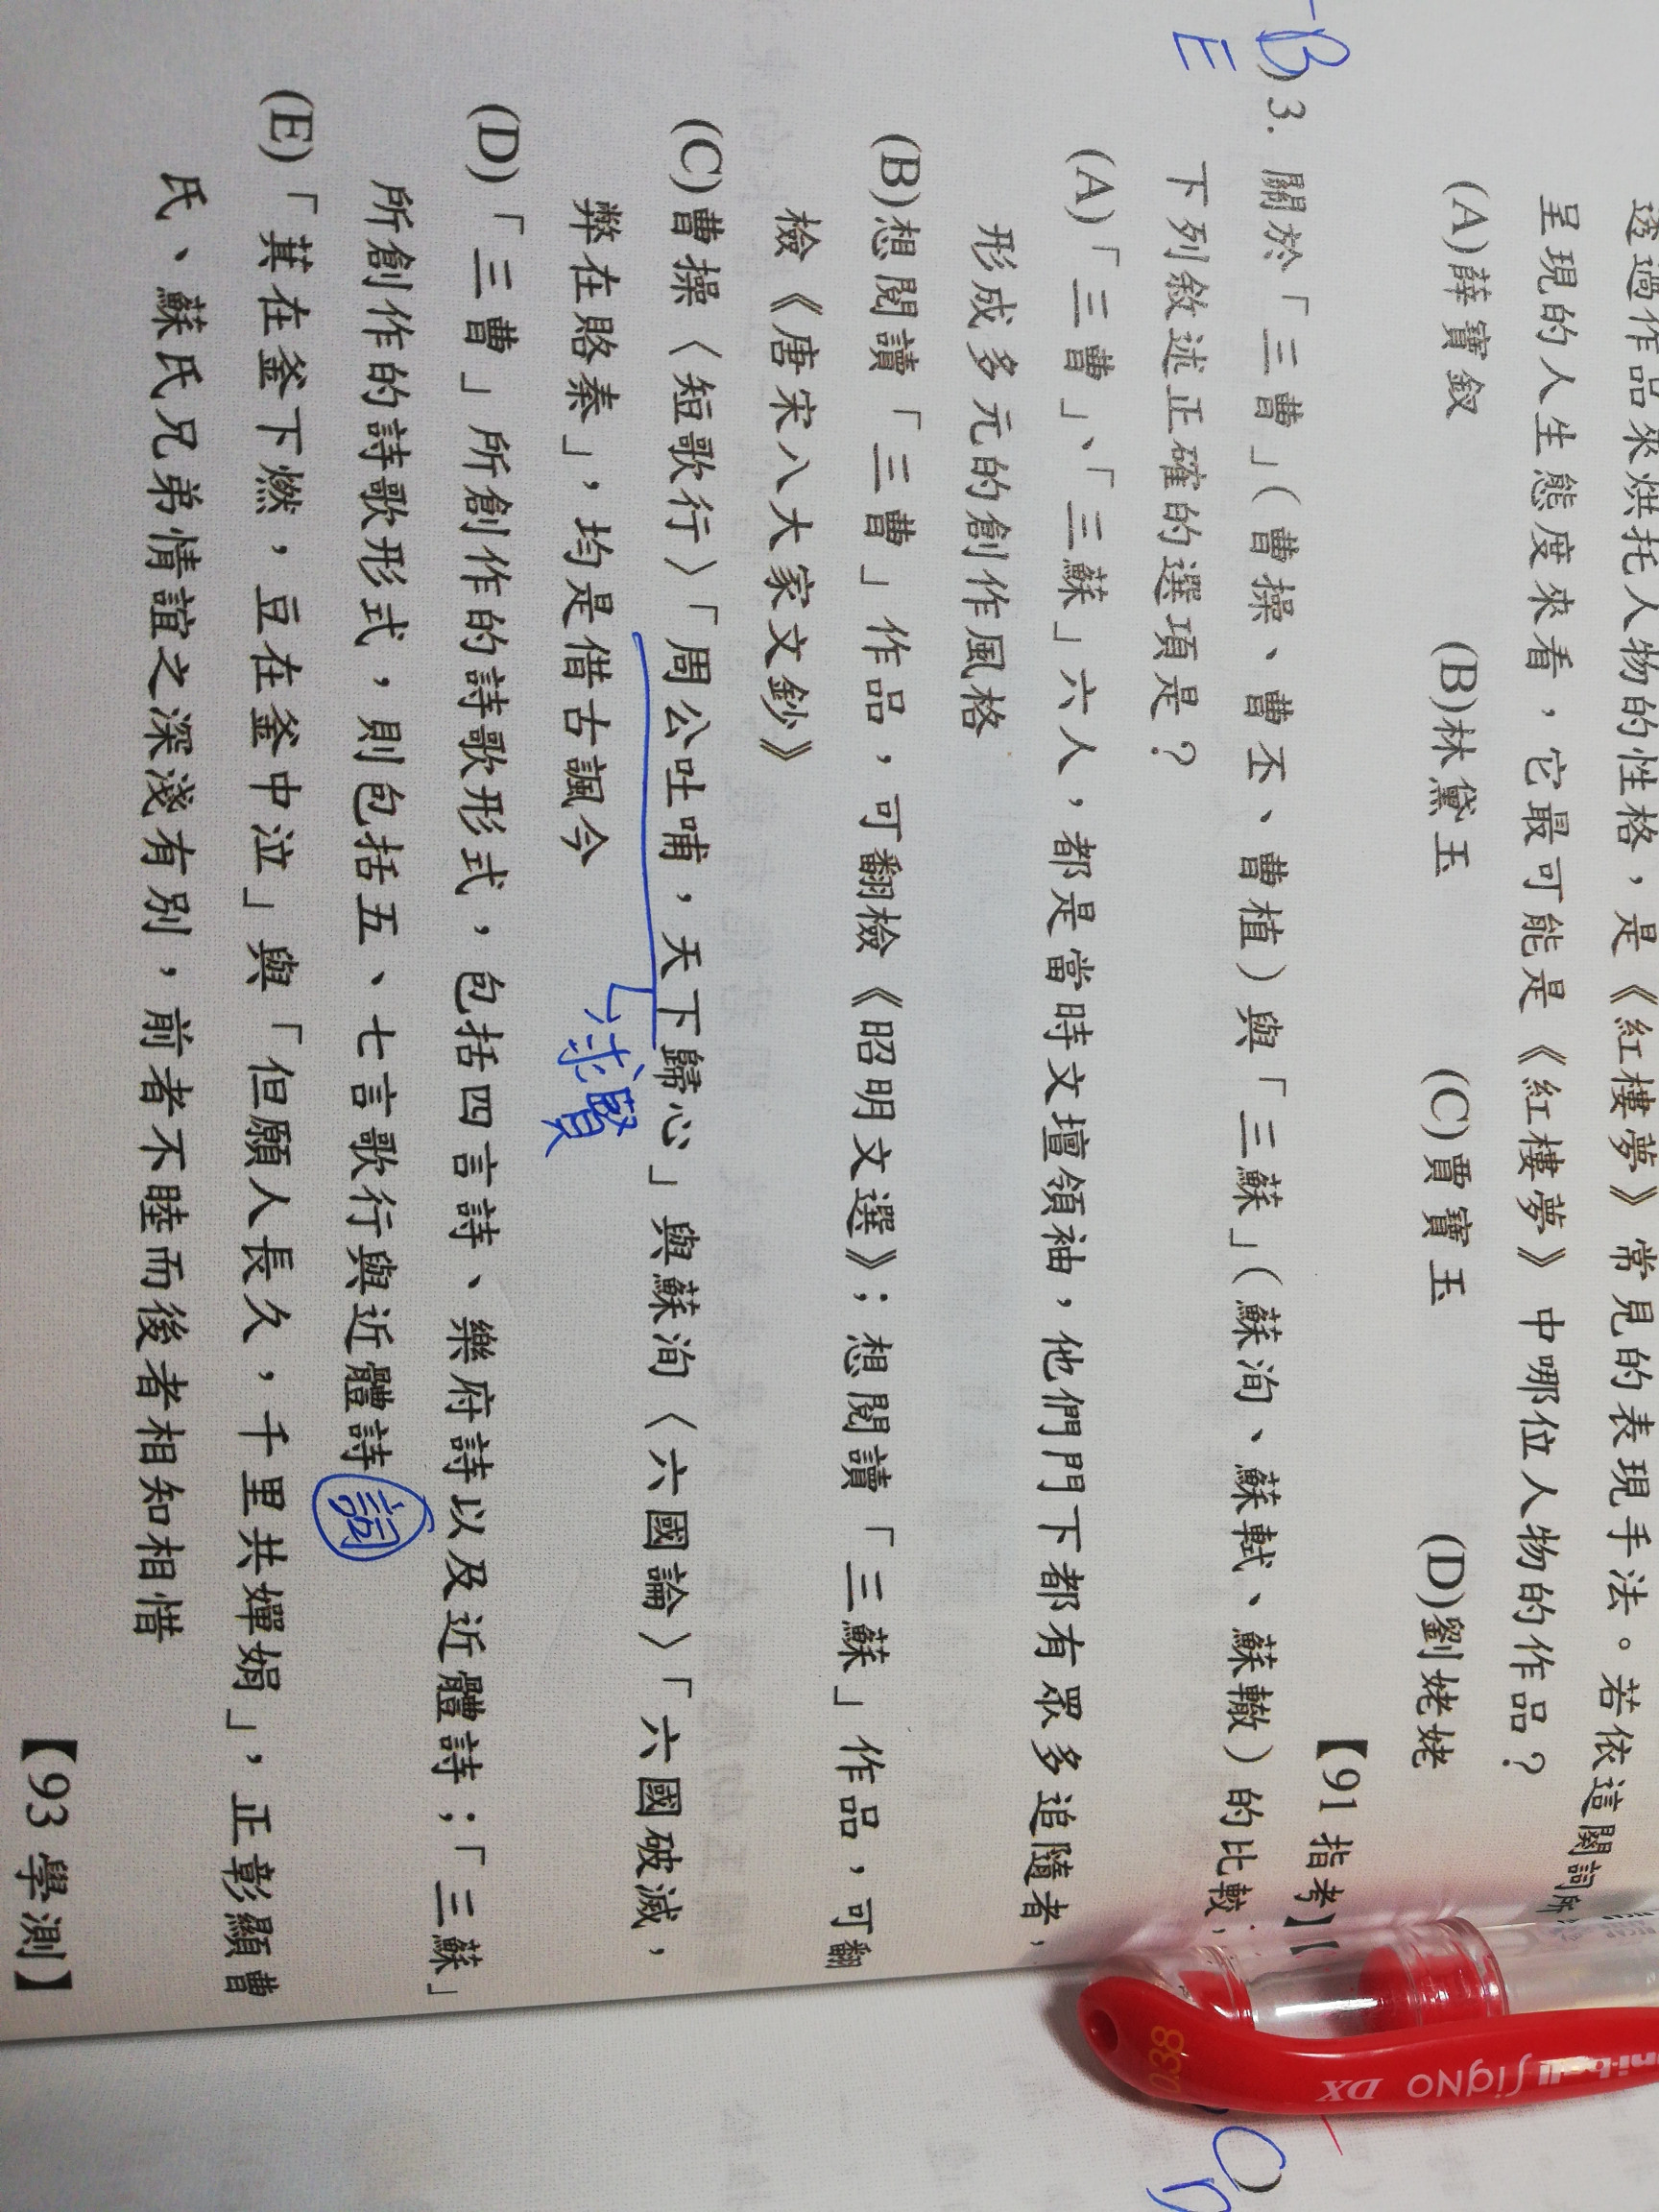 透過作品來烘托人物的性格，是《紅樓夢》常見的表現手法。若依這闋詞所
呈現的人生態度來看，它最可能是《紅樓夢》中哪位人物的作品？
(A)薛寶釵 (B)林黛玉 (C)賈寶玉 (D)劉姥姥
【91 指考】
B
E
)3. 關於「三曹」（曹操、曹丕、曹植）與「三蘇」（蘇洵、蘇軾、蘇轍）的比較，
下列敘述正確的選項是？
(A)「三曹」、「三蘇」六人，都是當時文壇領袖，他們門下都有眾多追隨者，
形成多元的創作風格
(B)想閱讀「三曹」作品，可翻檢《昭明文選》；想閱讀「三蘇」作品，可翻
檢《唐宋八大家文鈔》
(C)曹操〈短歌行〉「周公吐哺，天下歸心」與蘇洵〈六國論〉「六國破滅，
弊在賂秦」，均是借古諷今
求賢
(D)「三曹」所創作的詩歌形式，包括四言詩、樂府詩以及近體詩；「三蘇」
所創作的詩歌形式，則包括五、七言歌行與近體詩
詞
(E)「萁在釜下燃，豆在釜中泣」與「但願人長久，千里共嬋娟」，正彰顯曹
氏、蘇氏兄弟情誼之深淺有別，前者不睦而後者相知相惜
【93 學測】
0.38
uni-ball Signo DX